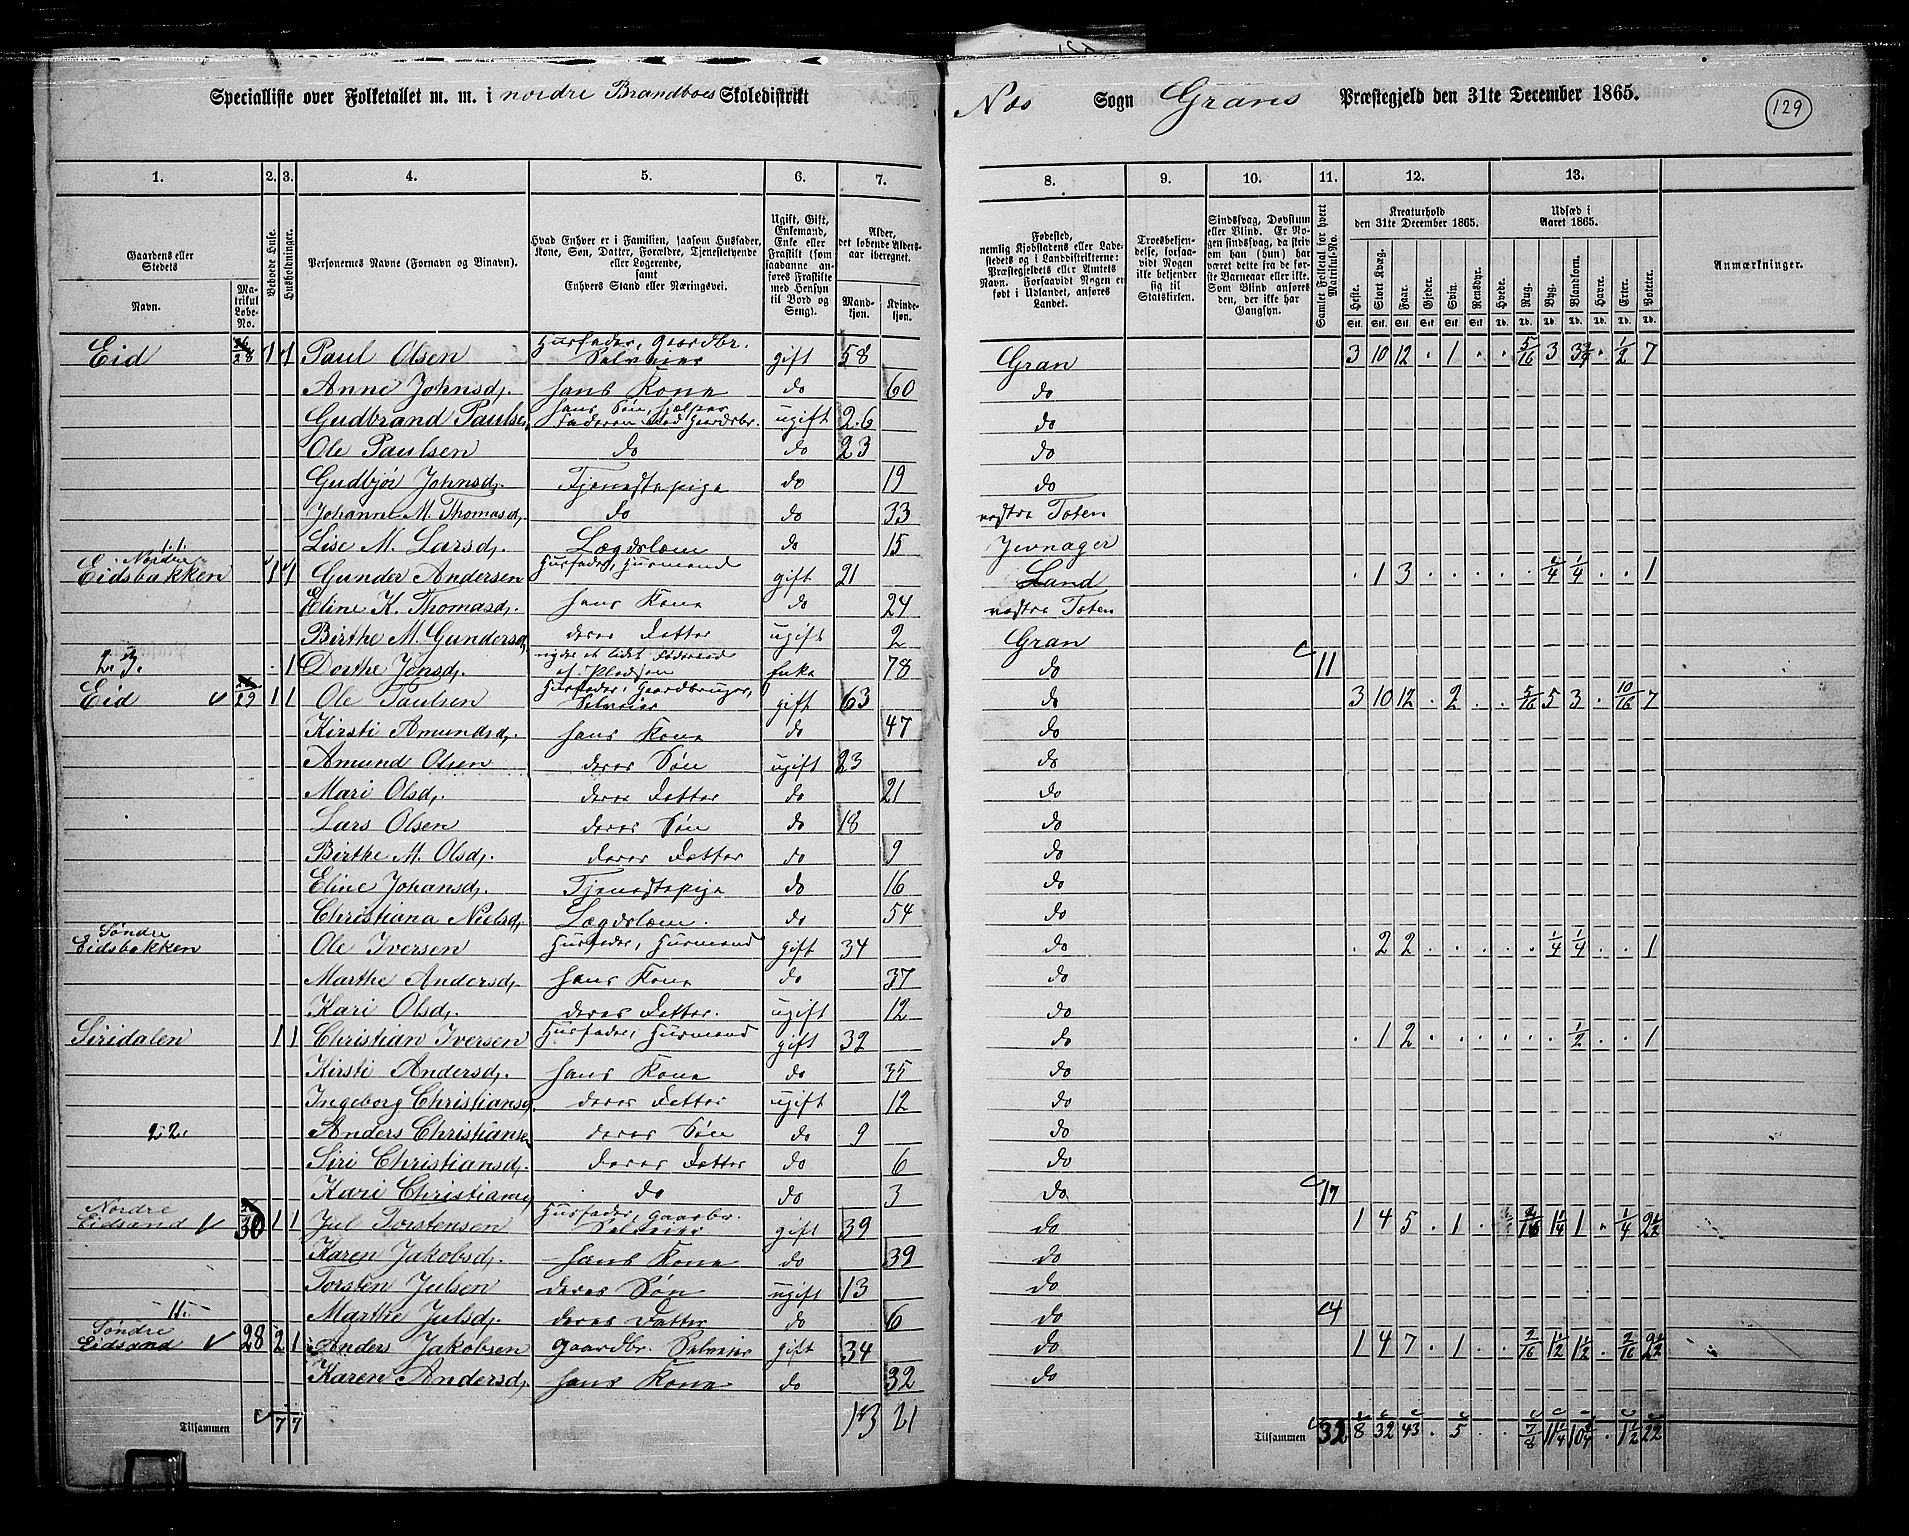 Specialliste over Folketallet m. m. i nordre Brandboes Skoledistrikt
Næs Sogn Grans Præstegjeld den 31te December 1865.
129
1. 2. 3. 4. 5. 6. 7. 8. 9. 10. 11. 12. 13.
Gaardens eller Stedets Navn. Matrikul Løbe-No. Beboede Huse. Husholdninger. Personernes Navne (Fornavn og Binavn). Hvad Enhver er i Familien, saasom Husfader, Kone, Søn, Datter, Forældre, Tjenestetyende eller Logerende, samt Enhvers Stand eller Næringsvei. Ugift, Gift, Enkemand, Enke eller Fraskilt (som saadanne anføres Fraskilte med Hensyn til Bord og Seng). Alder, det løbende Alders-aar iberegnet. Mandkjøn. Kvindekjøn.
Fødested, nemlig Kjøbstadens eller Ladestedets og i Landdistrikterne: Præstegjeldets eller Amtets Navn. Forsaavidt Nogen er født i Udlandet, anføres Landet. Troesbekjendelse, forsaavidt Nogen ikke bekjender sig til Statskirken. Sindssvag, Døvstum eller Blind. Er Nogen sindssvag, da skrives om han (hun) har været dette fra de første Barneaar eller ikke. Som Blind anføres den, der ikke har Gangsyn. Samlet Folketal for hvert Matrikul-No. Kreaturhold den 31te December 1865. Heste. Stort Kvæg. Faar. Gjeder. Svin. Rensdyr. Udsæd i Aaret 1865. Hvede. Rug. Byg. Blandkorn. Havre. Erter. Poteter. Anmærkninger.
Eid 28 1 1 Paul Olsen Husfader, Gaardbr. Selveier gift 58 Gran 3 10 12 . 1 . . 5/16 3 3 3/4 . 1/2 7
Anne Johnsd. hans Kone do 60 do
Gudbrand Paulsen hans Søn, hjelper Faderen med Gaardsbr. ugift 26 do
Ole Paulsen do do 23 do
Gudbjør Johnsd. Tjenestepige do 19 do
Johanne M. Thomasd. do do 33 vestre Toten
Lise M. Larsd. Lægdslem do 15 Jevnager
Nordre Eidsbakken 1 1 Gunder Andersen Husfader, Husmand gift 21 Land . 1 3 . . . . . 1/4 1/4 . . 1
Eline K. Thomasd. hans Kone do 24 vestre Toten
Birthe M. Gundersd. deres Datter ugift 2 Gran
. 1 Dorthe Jensd. nyder et lidet Føderaad af Pladsen Enke 78 do 11
Eid 29 1 1 Ole Paulsen Husfader, Gaardbruger, Selveier gift 63 do 3 10 12 . 2 . . 5/16 5 3 . 10/16 7
Kirsti Amundsd. hans Kone do 47 do
Amund Olsen deres Søn ugift 23 do
Mari Olsd. deres Datter do 21 do
Lars Olsen deres Søn do 18 do
Birthe M. Olsd. deres Datter do 9 do
Eline Johansd. Tjenestepige do 16 do
Christiana Nielsd. Lægdslem. do 54 do
Søndre Eidsbakken Ole Iversen Husfader, Husmand gift 34 do . 2 2 . . . . . 1/4 1/4 . . 1
Marthe Andersd. hans Kone do 37 do
Kari Olsd. deres Datter. ugift 12 do
Siridalen 1 1 Christian Iversen Husfader, Husmand gift 32 do . 1 2 . . . . . . 1/2 . . 1
Kirsti Andersd. hans Kone do 35 do
Ingeborg Christiansd. deres Datter ugift 12 do
2.2. Anders Christiansen deres Søn do 9 do
Siri Christiansd. deres Datter do 6 do
Kari Christiansd. do do 3 do 17
Nordre Eidsand 30 1 1 Jul Torstensen Husfader, Gaardbr. Selveier gift 39 do 1 4 5 . 1 . 2/16 1 1/4 1 . 1/4 2 1/2
Karen Jakobsd. hans Kone do 39 do
Torsten Julsen deres Søn ugift 13 do
Marthe Julsd. deres Datter do 6 do 4
Søndre Eidsand 28 2 1 Anders Jakobsen Gaardbr. Selveier gift 34 do 1 4 7 . 1 . . 2/16 1 1/2 1 1/2 . 2/16 2 1/2
Karen Andersd. hans Kone do 32 do
Tilsammen 7 7 13 21
Tilsammen 32 8 32 43 . 5 . . 7/8 11 1/4 10 1/4 . 1 1/2 22